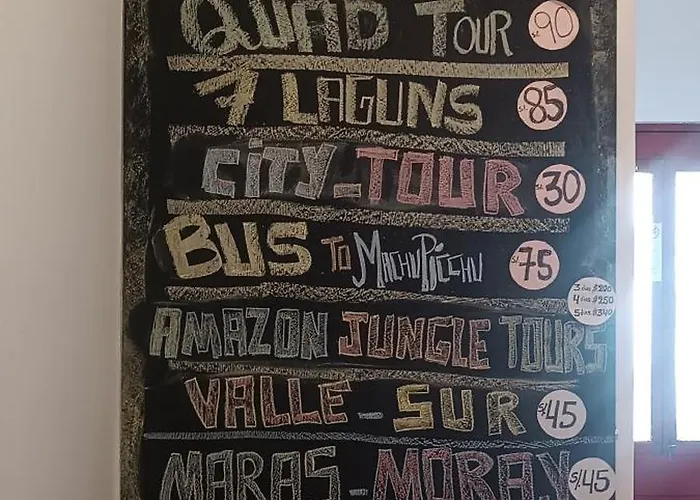 QUAD TOUR S/.90
7 LAGUNS S/.85
CITY-TOUR S/.30
BUS TO MACHUPICCHU S/.75
3 días $220
4 días $250
5 días $340
AMAZON JUNGLE TOURS
VALLE - SUR S/45
MARAS - MORAY S/.45